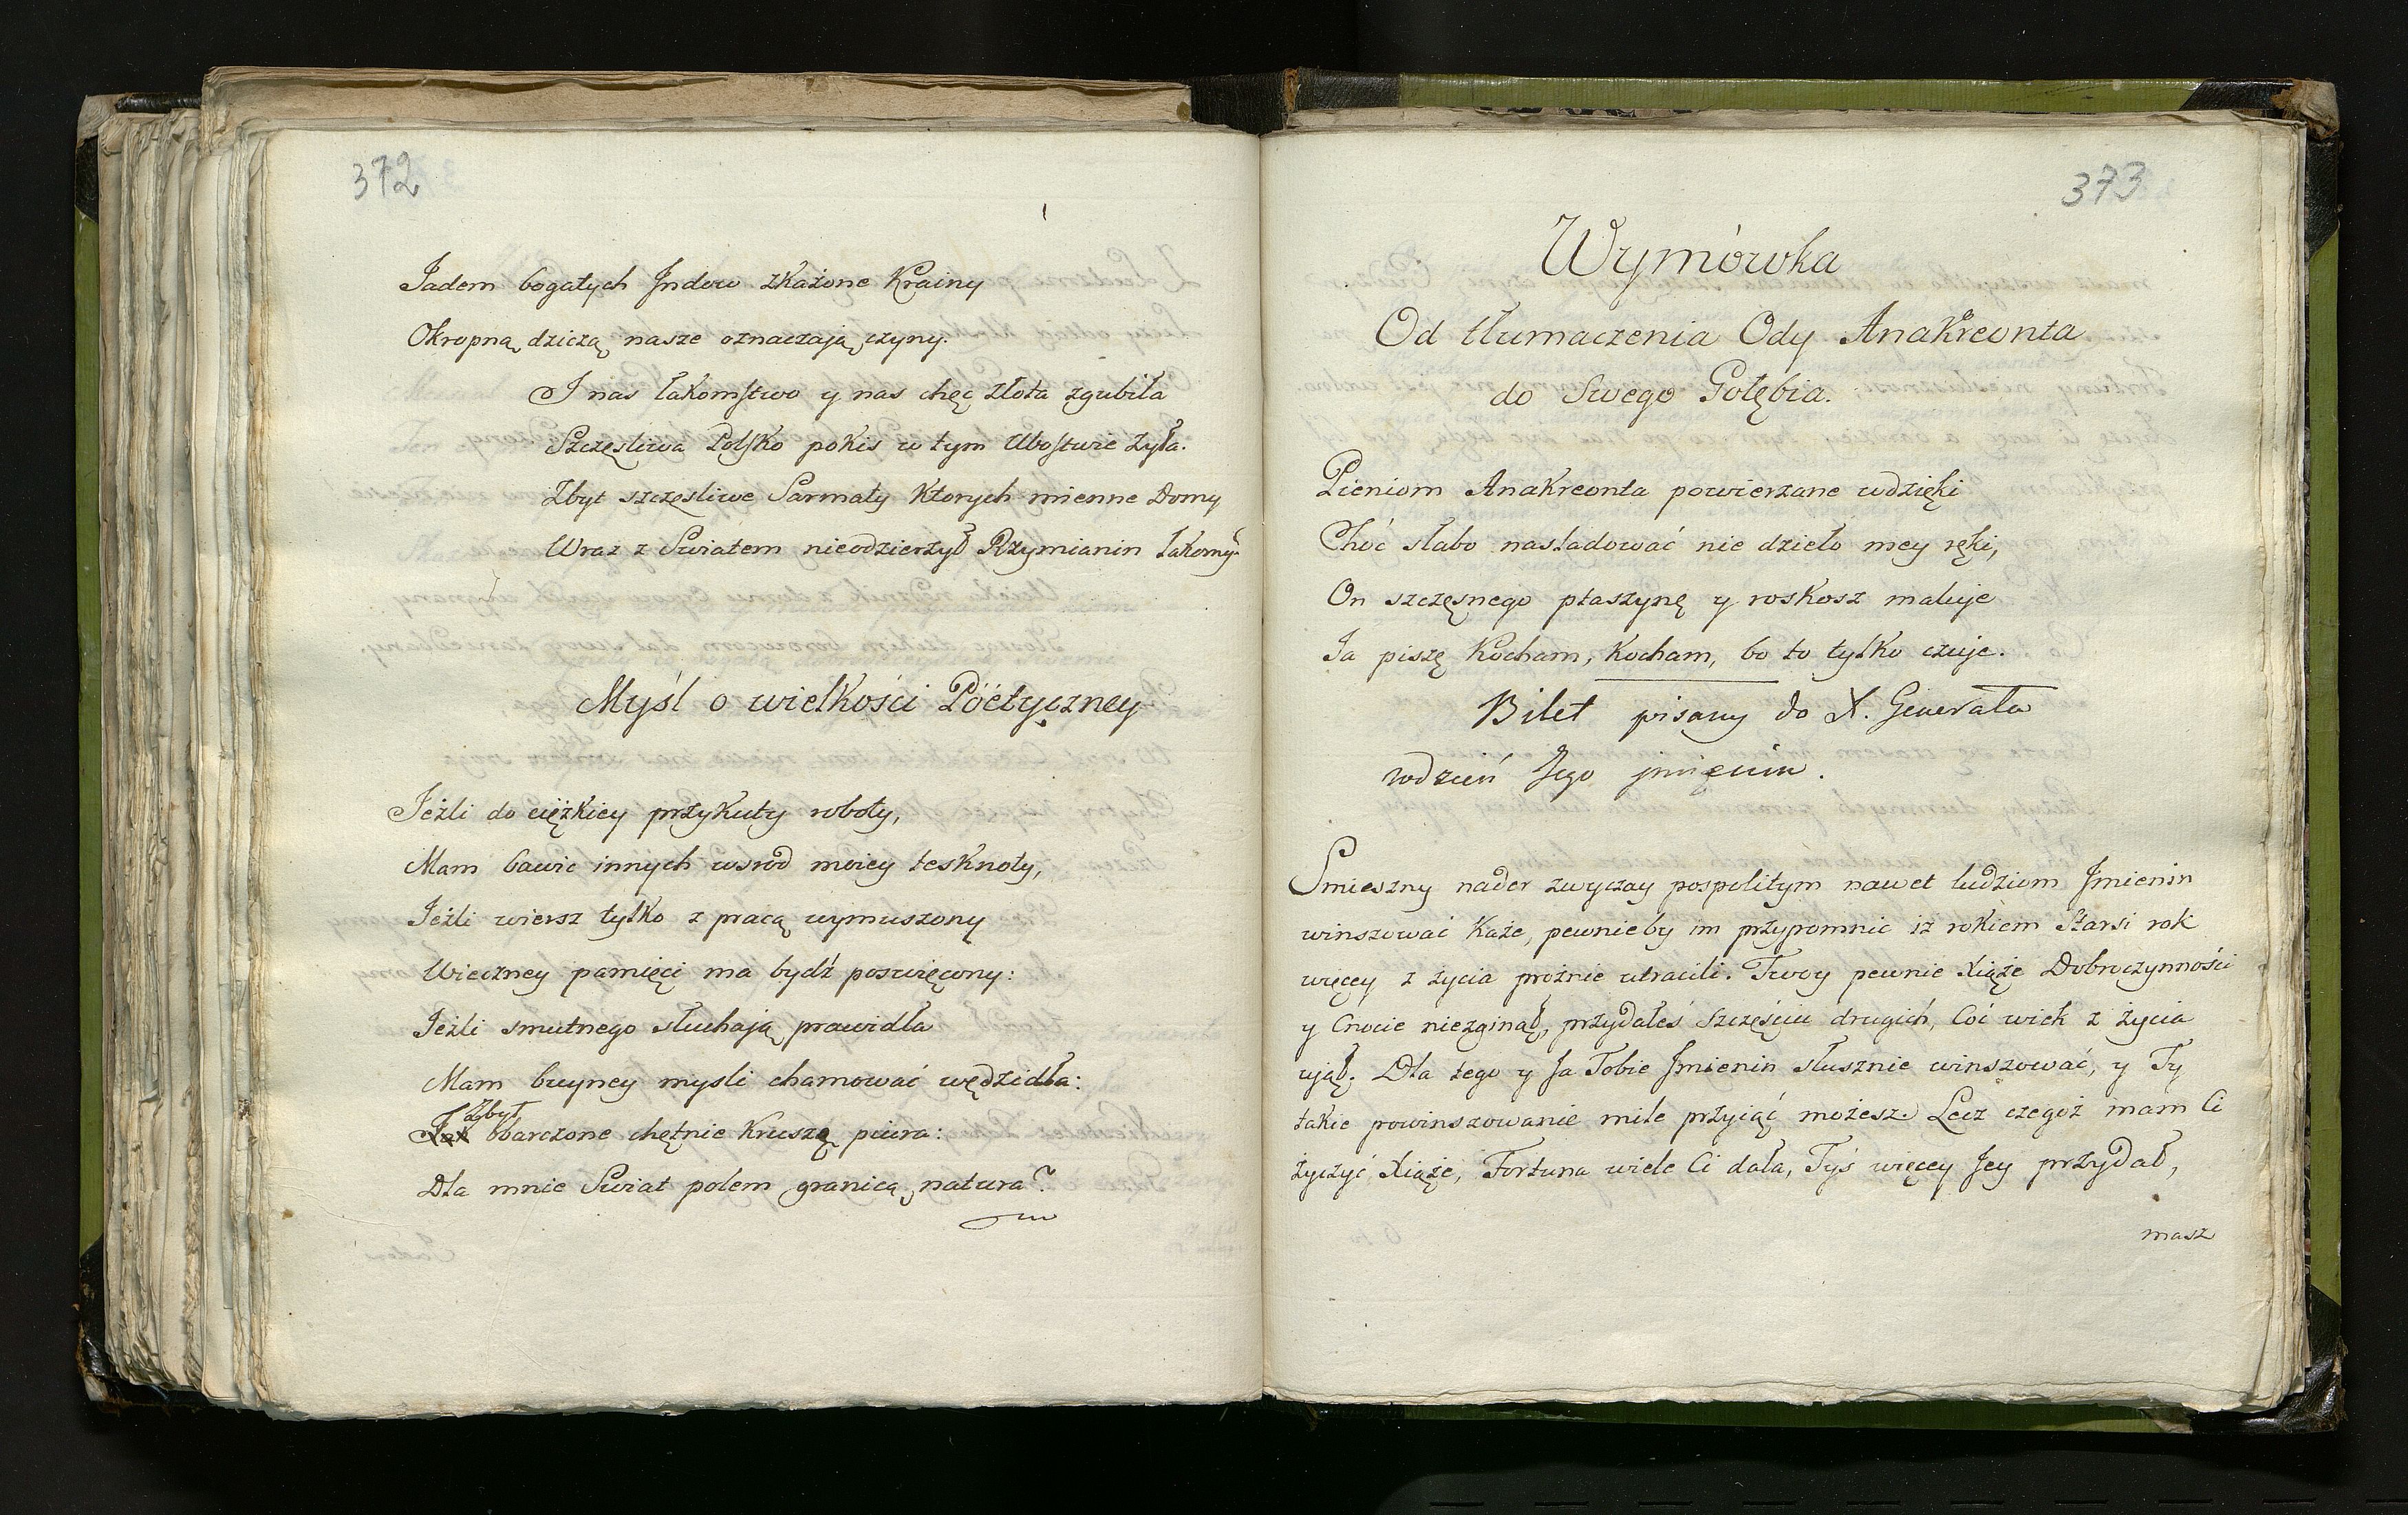 372
Jadem bogatych Jndow zkażone Krainy
Okropną dziczą nasze oznaczają czyny.
I nas łakomstwo y nas chęc złota zgubiła
Szczęsliwa Polsko pokis w tym Ubostwie żyła.
Zbyt szczęsliwe Sarmaty Ktorych mienne Domy
Wraz z Swiatem nieodzierżył Rzymianin łakomy.
Myśl o wielkości Pöétyczney
Jeżli do ciężkiey przykuty roboty,
Mam bawic innych wsrod moiey tesknoty,
Jeżli wiersz tylko z pracą wymuszony
Wieczney pamięci ma bydź poswięcony:
Jeżli smutnego słuchają prawidła
Mam buyney mysli chamować wędzidła:
Zbyt
obarczone chętnie kruszę piura:
Dla mnie Swiat polem granicą natura?
373
Wymówka
Od tłumaczenia Ody Anakreonta
do Swego Gołębia.
Pieniom Anakreonta powierzane wdzięki
Chóć słabo nasladować nie dzieło mey ręki,
On szczęsnego ptaszynę y roskosz maluje
Ja piszę Kocham, Kocham, bo to tylko czuje.
Bilet pisany do X. Generała
wdzień Jego jmięnin.
Smieszny nader zwyczay pospolitym nawet ludziom Jmienin
winszować Każe, pewnieby im przypomnić iz rokiem Starsi rok
więcey z życia prożnie utracili. Twoy pewnie Xiąże Dobroczynności
y Cnocie niezginął, przydałeś Szczęściu drugich, Coć wiek z życia
ujął. Dla tego y Ja Tobie Jmienin słusznie winszować, y Ty
takie powinszowanie mile przyiąć możesz. Lecz czegoż mam Ci
życzyć Xiąże, Fortuna wiele Ci dała, Tyś więcey Jey przydał,
masz